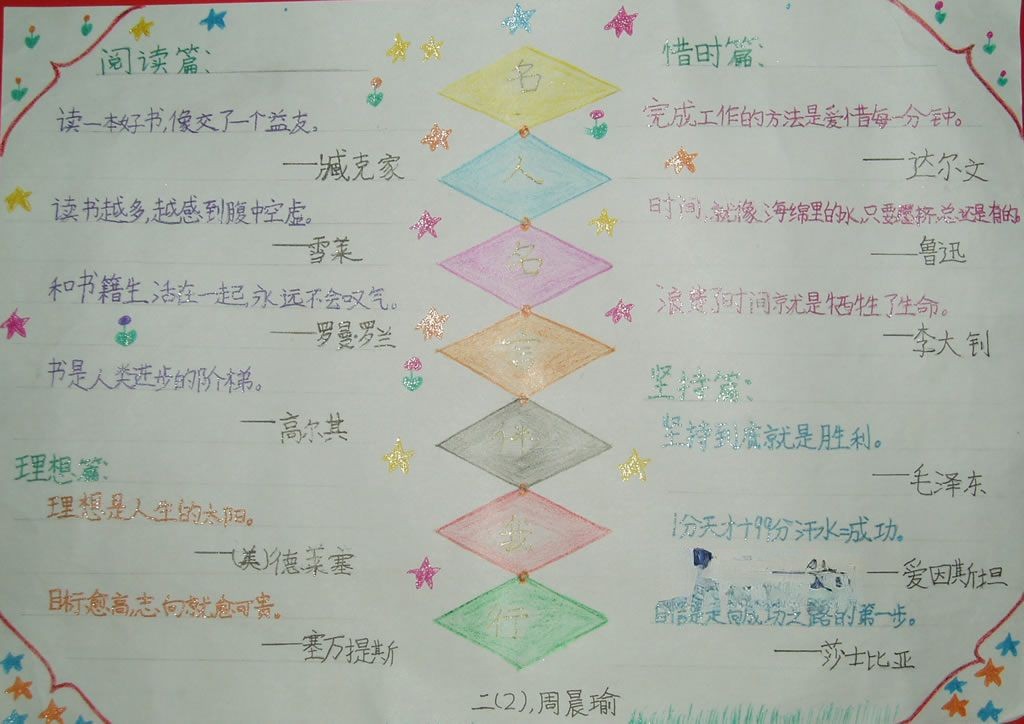 阅读篇:
读一本好书,像交了一个益友。
——臧克家
读书越多,越感到腹中空虚。
——雪莱
和书籍生活在一起,永远不会叹气。
——罗曼·罗兰
书是人类进步的阶梯。
——高尔其
理想篇:
理想是人生的太阳。
——(美)德莱塞
目标愈高,志向就愈可贵。
——塞万提斯
名
人
名
言
伴
我
行
惜时篇:
完成工作的方法是爱惜每一分钟。
——达尔文
时间,就像海绵里的水,只要愿挤,总还是有的。
——鲁迅
浪费了时间就是牺牲了生命。
——李大钊
坚持篇:
坚持到底就是胜利。
——毛泽东
1分天才+99分汗水=成功。
——爱因斯坦
自信是走向成功之路的第一步。
——莎士比亚
二(2),周晨瑜